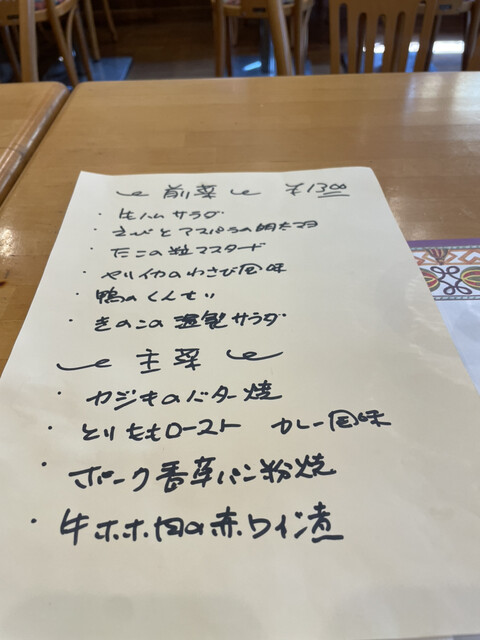 前菜 ¥1300
・生ハムサラダ
・えびとアスパラの明太マヨ
・たこの粒マスタード
・ヤリイカのわさび風味
・鴨のくんせい
・きのこの温製サラダ
主菜
・カジキのバター焼
・とりももロースト カレー風味
・ポーク香草パン粉焼
・牛ホホ肉の赤ワイン煮